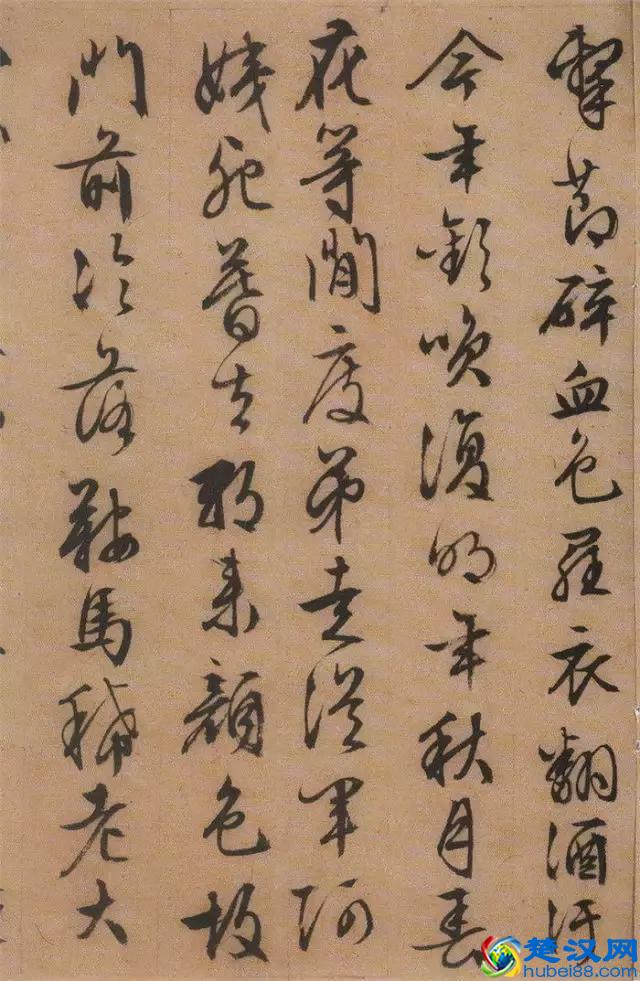 擊節碎血色羅衣翻酒汙
今年歡咲復明年秋月春
花等閒度弟走從軍阿
姨死暮去朝來顏色故
門前冷落鞍馬稀老大
楚汉网
hubei88.com